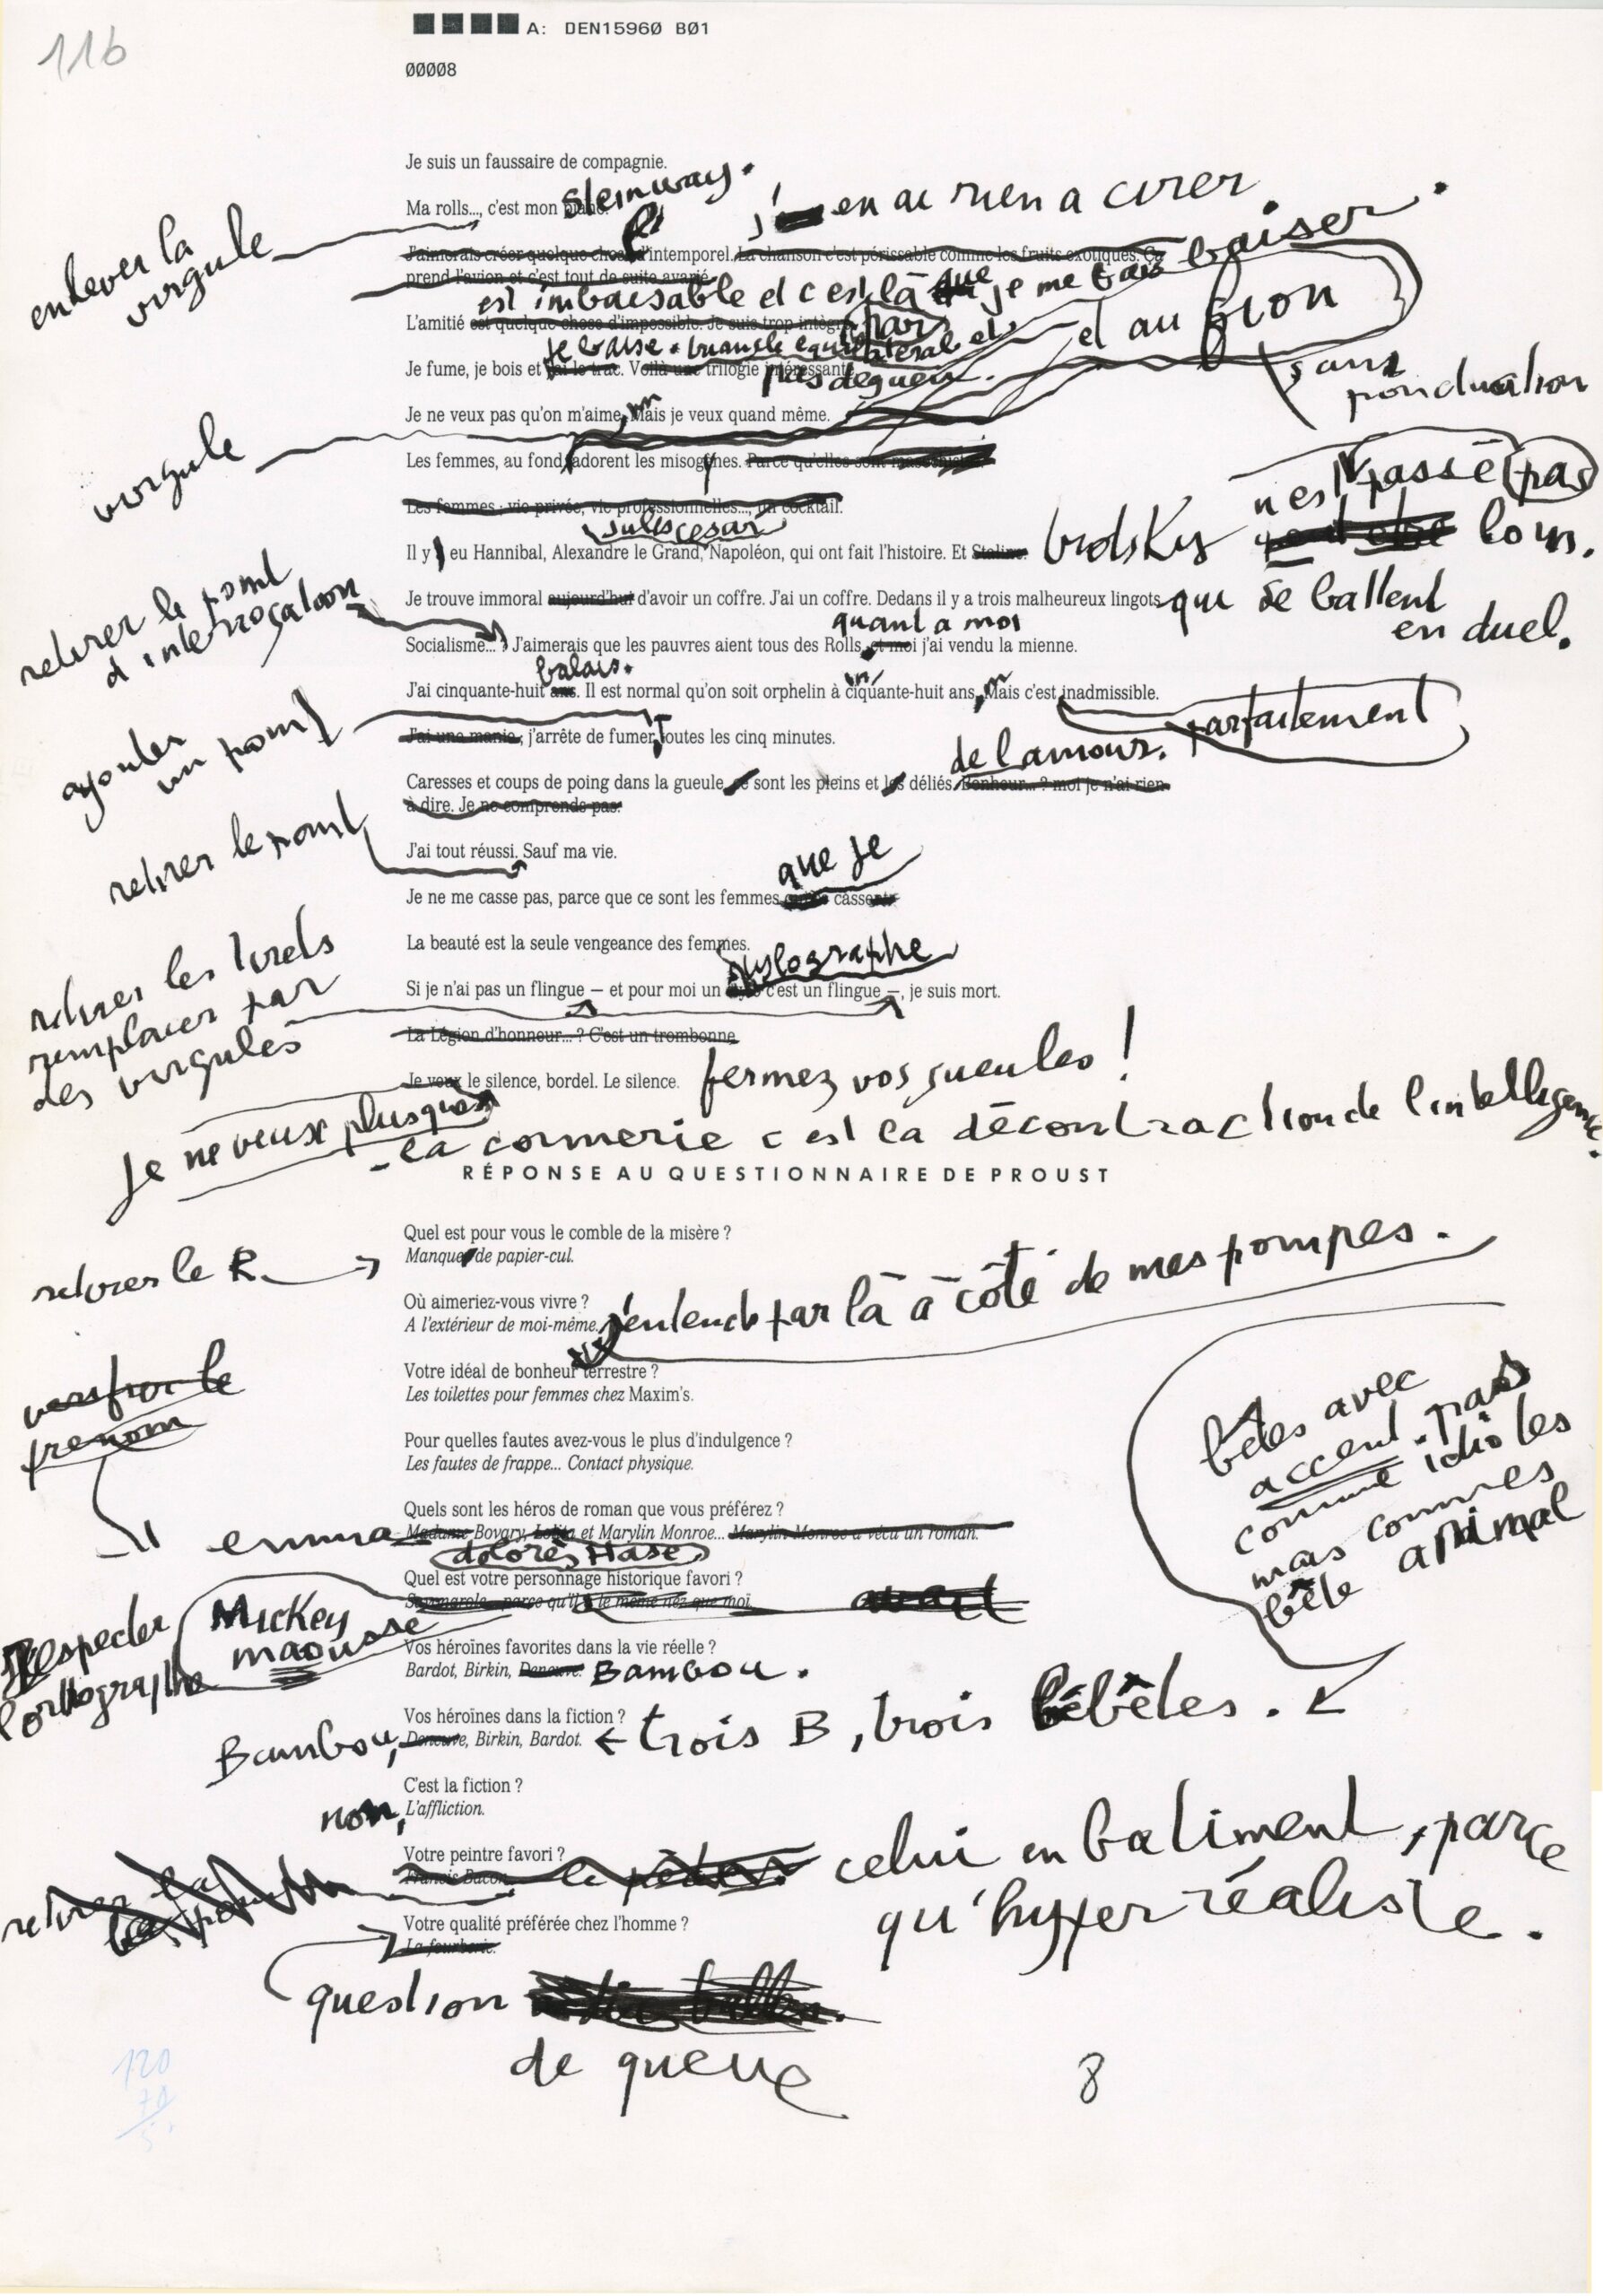 116
A: DEN15960 B01
00008
Je suis un faussaire de compagnie.
Steinway.
Ma rolls..., c'est mon piano.
enlever la
virgule
j' en ai rien a cirer.
J'aimerais créer quelque chose d'intemporel. La chanson c'est périssable comme les fruits exotiques. Ça
prend l'avion et c'est tout de suite avarié.
est imbaisable et c'est là que je me fais baiser.
L'amitié est quelque chose d'impossible. Je suis trop intègre
par
et au fion
je baise. triangle équilatéral et
Je fume, je bois et j'ai le trac. Voilà une trilogie intéressante
pas dégueu.
sans
ponctuation
Je ne veux pas qu'on m'aime, Mais je veux quand même.
m
virgule
Les femmes, au fond, adorent les misogynes. Parce qu'elles sont
n'est passé pas
Les femmes : vie privée, vie professionnelles..., un cocktail.
Jules cesar
Il y eu Hannibal, Alexandre le Grand, Napoléon, qui ont fait l'histoire. Et Staline.
brodsky loin.
retirer le point
d'interrogation
Je trouve immoral aujourd'hui d'avoir un coffre. J'ai un coffre. Dedans il y a trois malheureux lingots
qui se battent
en duel.
quant a moi
Socialisme... ? J'aimerais que les pauvres aient tous des Rolls, et moi j'ai vendu la mienne.
balais.
J'ai cinquante-huit ans. Il est normal qu'on soit orphelin à ciquante-huit ans, Mais c'est inadmissible.
in
m
parfaitement
ajouter
un point
J'ai une manie ; j'arrête de fumer Toutes les cinq minutes.
de l'amour.
Caresses et coups de poing dans la gueule, ce sont les pleins et les déliés. Bonheur... ? moi je n'ai rien
à dire. Je ne comprends pas.
retirer le point
J'ai tout réussi. Sauf ma vie.
que je
Je ne me casse pas, parce que ce sont les femmes cassent
La beauté est la seule vengeance des femmes.
stylographe
retirer les tirets
remplacer par
des virgules
Si je n'ai pas un flingue – et pour moi un stylo c'est un flingue –, je suis mort.
La Légion d'honneur... ? C'est un trombonne
Je veux le silence, bordel. Le silence.
fermez vos gueules !
Je ne veux plus que
- la connerie c'est la décontraction de l'intelligence.
RÉPONSE AU QUESTIONNAIRE DE PROUST
Quel est pour vous le comble de la misère ?
retirer le R
Manquer de papier-cul.
Où aimeriez-vous vivre ?
A l'extérieur de moi-même.
j'entends par là à côté de mes pompes.
Votre idéal de bonheur terrestre ?
Les toilettes pour femmes chez Maxim's.
verifier le
prenom
bêtes avec
accent. pas
comme idiotes
mais commes
bête animal
Pour quelles fautes avez-vous le plus d'indulgence ?
Les fautes de frappe... Contact physique.
Quels sont les héros de roman que vous préférez ?
emma
Madame Bovary, Lolita et Marylin Monroe... Marylin Monroe a vécu un roman.
dolorès Hase
Quel est votre personnage historique favori ?
parce qu'il a le même nez que moi.
Respecter
l'orthographe
Mickey
maousse
Vos héroïnes favorites dans la vie réelle ?
Bardot, Birkin, Deneuve.
Bambou.
Vos héroïnes dans la fiction ?
Bambou,
Deneuve, Birkin, Bardot.
← trois B, trois bébêtes.
C'est la fiction ?
non,
L'affliction.
Votre peintre favori ?
Francis Bacon.
celui en batiment, parce
qu'hyperréaliste.
Votre qualité préférée chez l'homme ?
La fourberie.
question
de queue
8
120
70